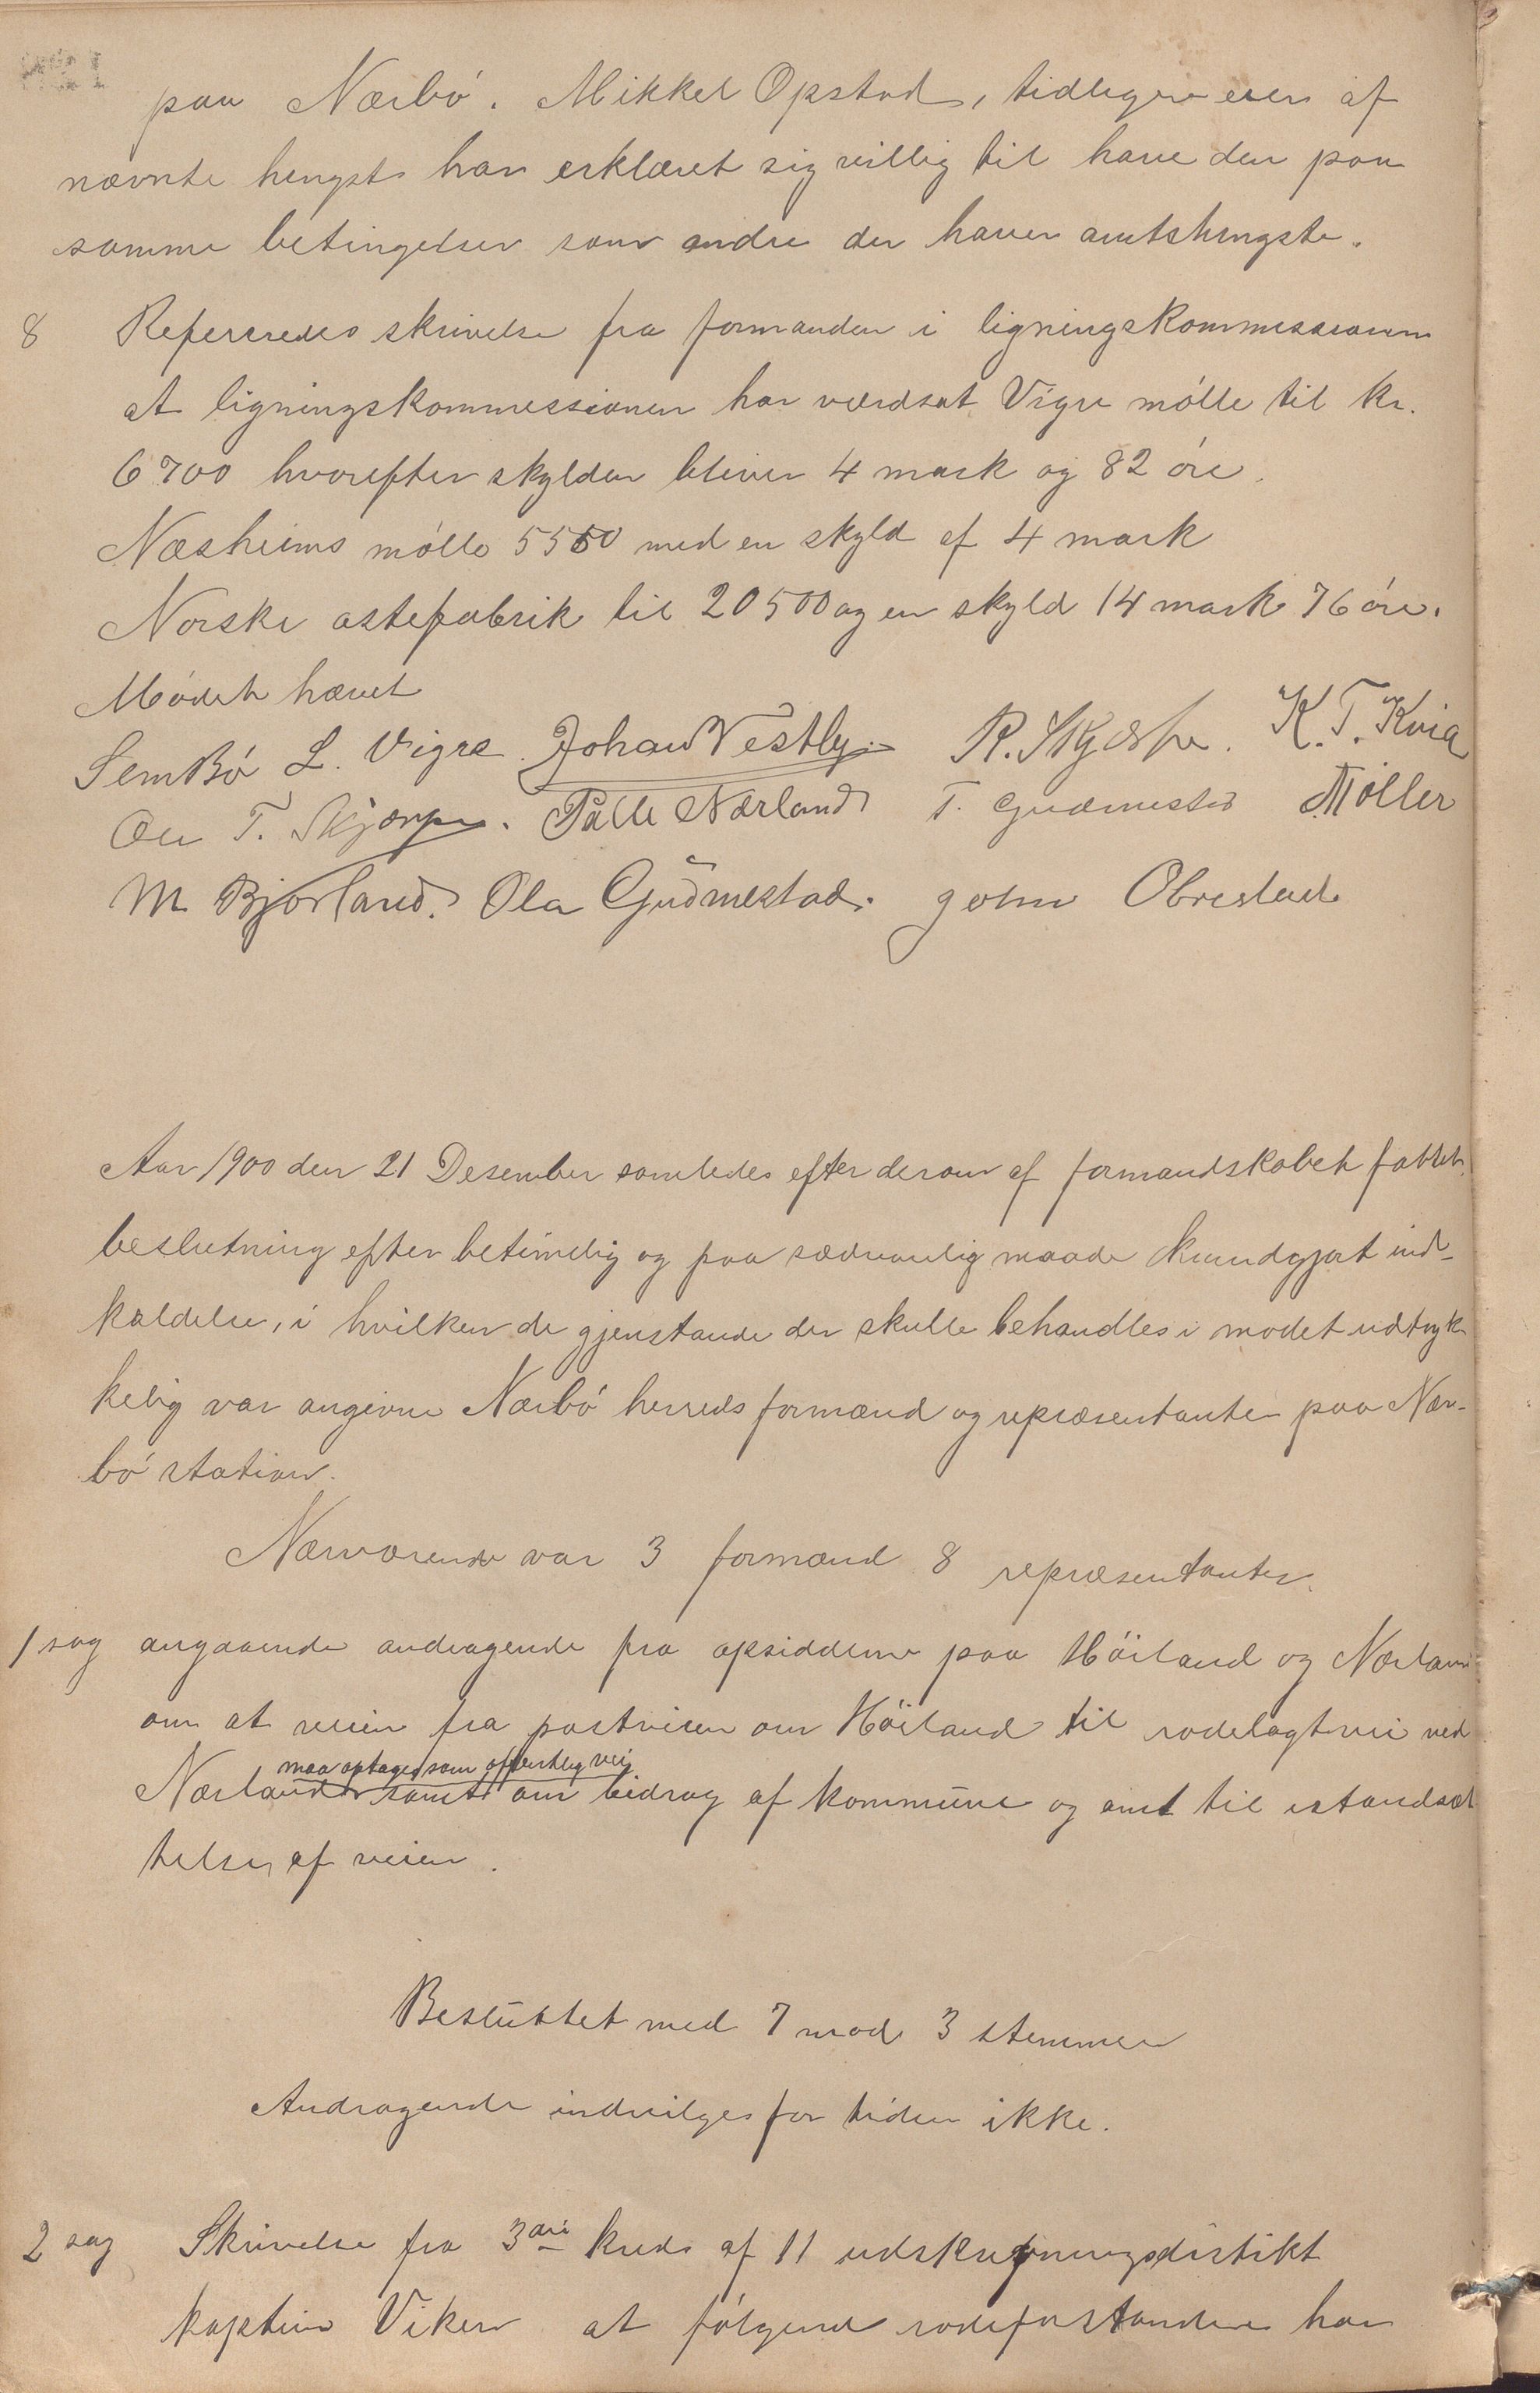 paa Nærbö. Mikkel Opstad, tidligere eier af
nævnte hengst har erklæret sig villig til have den paa
samme betingelser som andre der haver amtshingste.
8 Refereredes skrivelse fra formanden i ligningskommessionen
at ligningskommessionen har værdsat Vigre mölle til kr.
6700 hvorefter skylden bliver 4 mark og 82 öre.
Næsheims mölle 5550 med en skyld af 4 mark
Norske ostefabrik til 20500 og en skyld 14 mark 76 öre.
Mödet hævet
Sem Bö L. Vigre. Johan Vestly. R. Skjærpe. K. T. Kvia
Ole T. Skjærpe. Palle Nærland T. Gudmestad Möller
M Bjorland. Ola Gudmestad. John Obrestad
Aar 1900 den 21 Desember samledes efter derom af formandskabet fattet
beslutning efter betimelig og paa sædvanlig maade kundgjort ind-
kaldelse, i hvilken de gjenstande der skulle behandles i mødet udtryk
kelig var angivne Nærbö herreds formænd og repræsentanter paa Nær-
bö station.
Nærværende var 3 formænd 8 repræsentanter.
1 sag angaaende andragende fra opsidderne paa Höiland og Nærland
om at veien fra postveien om Höiland til rodelagt vei ved
maa optages som offentlig vei
Nærland samt om bidrag af kommune og amt til istandsæt
telse af veien.
Besluttet med 7 mod 3 stemmer
Andragende indvilges for tiden ikke.
2 sag Skrivelse fra 3die kreds af 11 udskrivningsdistikt
kaptein Viken at følgende rodeforstandere har